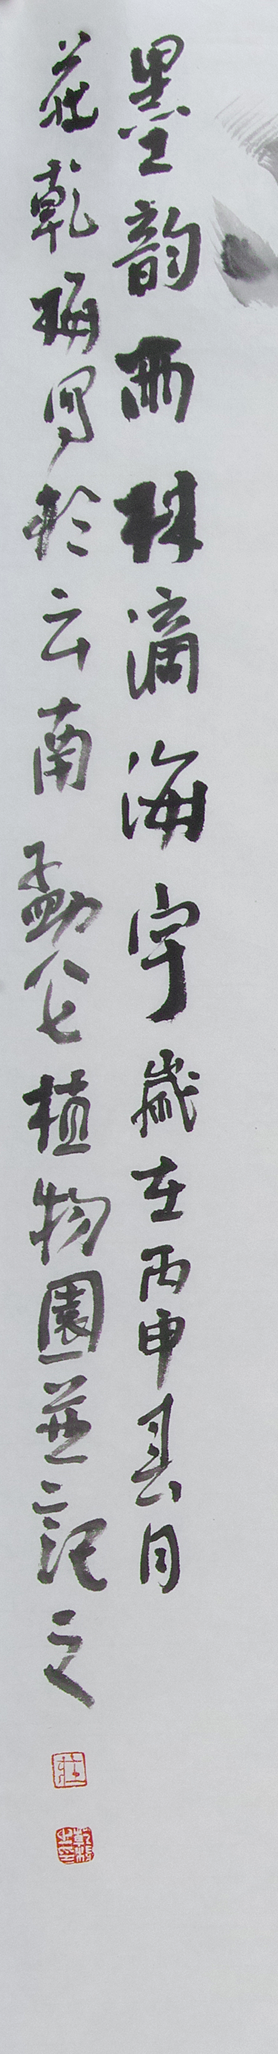 墨韵雨林滴海宇歲在丙申春月
莊乾梅写於云南勐仑植物園並記之
莊